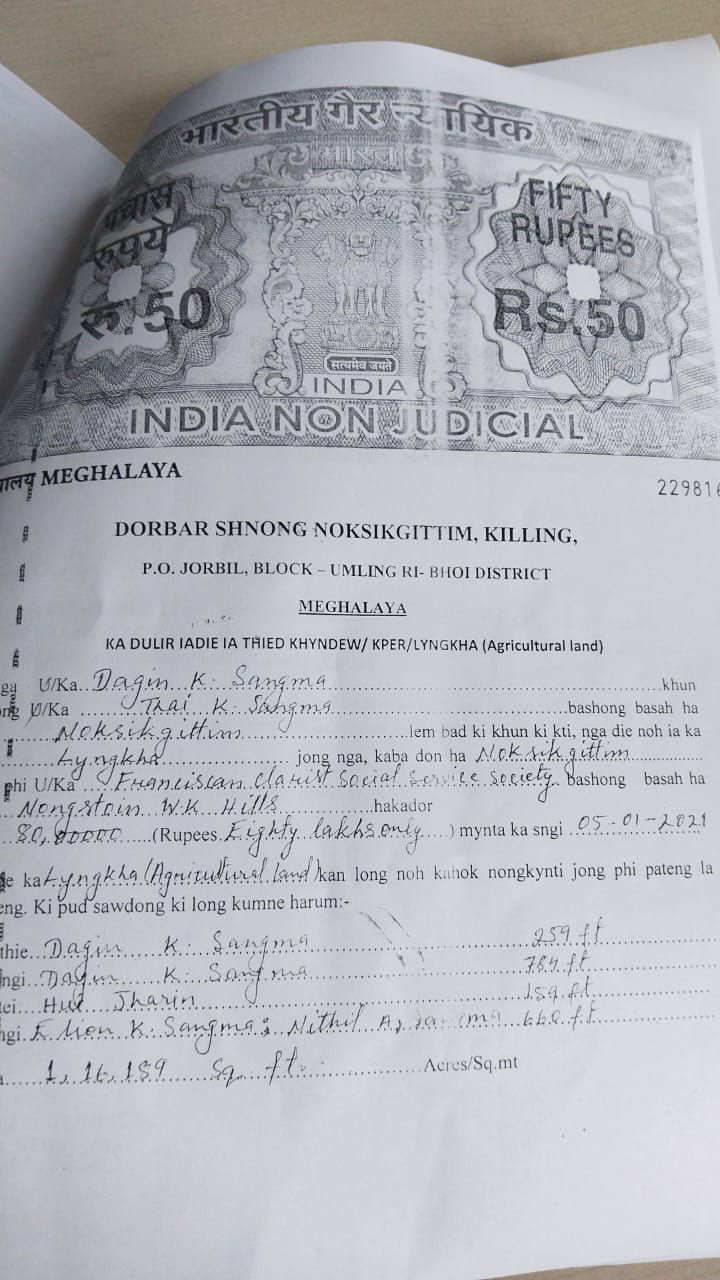 भारतीय गैर न्यायिक
भारत
पचास
रुपये
रु.50
FIFTY
RUPEES
Rs.50
सत्यमेव जयते
INDIA
INDIA NON JUDICIAL
MEGHALAYA
229816
DORBAR SHNONG NOKSIKGITTIM, KILLING,
P.O. JORBIL, BLOCK – UMLING RI- BHOI DISTRICT
MEGHALAYA
KA DULIR IADIE IA THIED KHYNDEW/ KPER/LYNGKHA (Agricultural land)
U/Ka Dagin K. Sangma khun
U/Ka Thai K. Sangma bashong basah ha
Noksikgittim lem bad ki khun ki kti, nga die noh ia ka
Lyngkha jong nga, kaba don ha Noksikgittim
phi U/Ka Franciscan Clarist Social Service Society bashong basah ha
Nongstoin W.K Hills hakador
80,00000 (Rupees Eighty lakhs only) mynta ka sngi 05-01-2021
ka Lyngkha (Agricultural land) kan long noh kahok nongkynti jong phi pateng la
eng. Ki pud sawdong ki long kumne harum:-
thie Dagin K. Sangma 259 ft
ngi Dagin K. Sangma 784 ft
tei Tharin 159 ft
ngi Elion K. Sangma & Nithil 660 ft
1,16,159 Sq. ft. Acres/Sq.mt